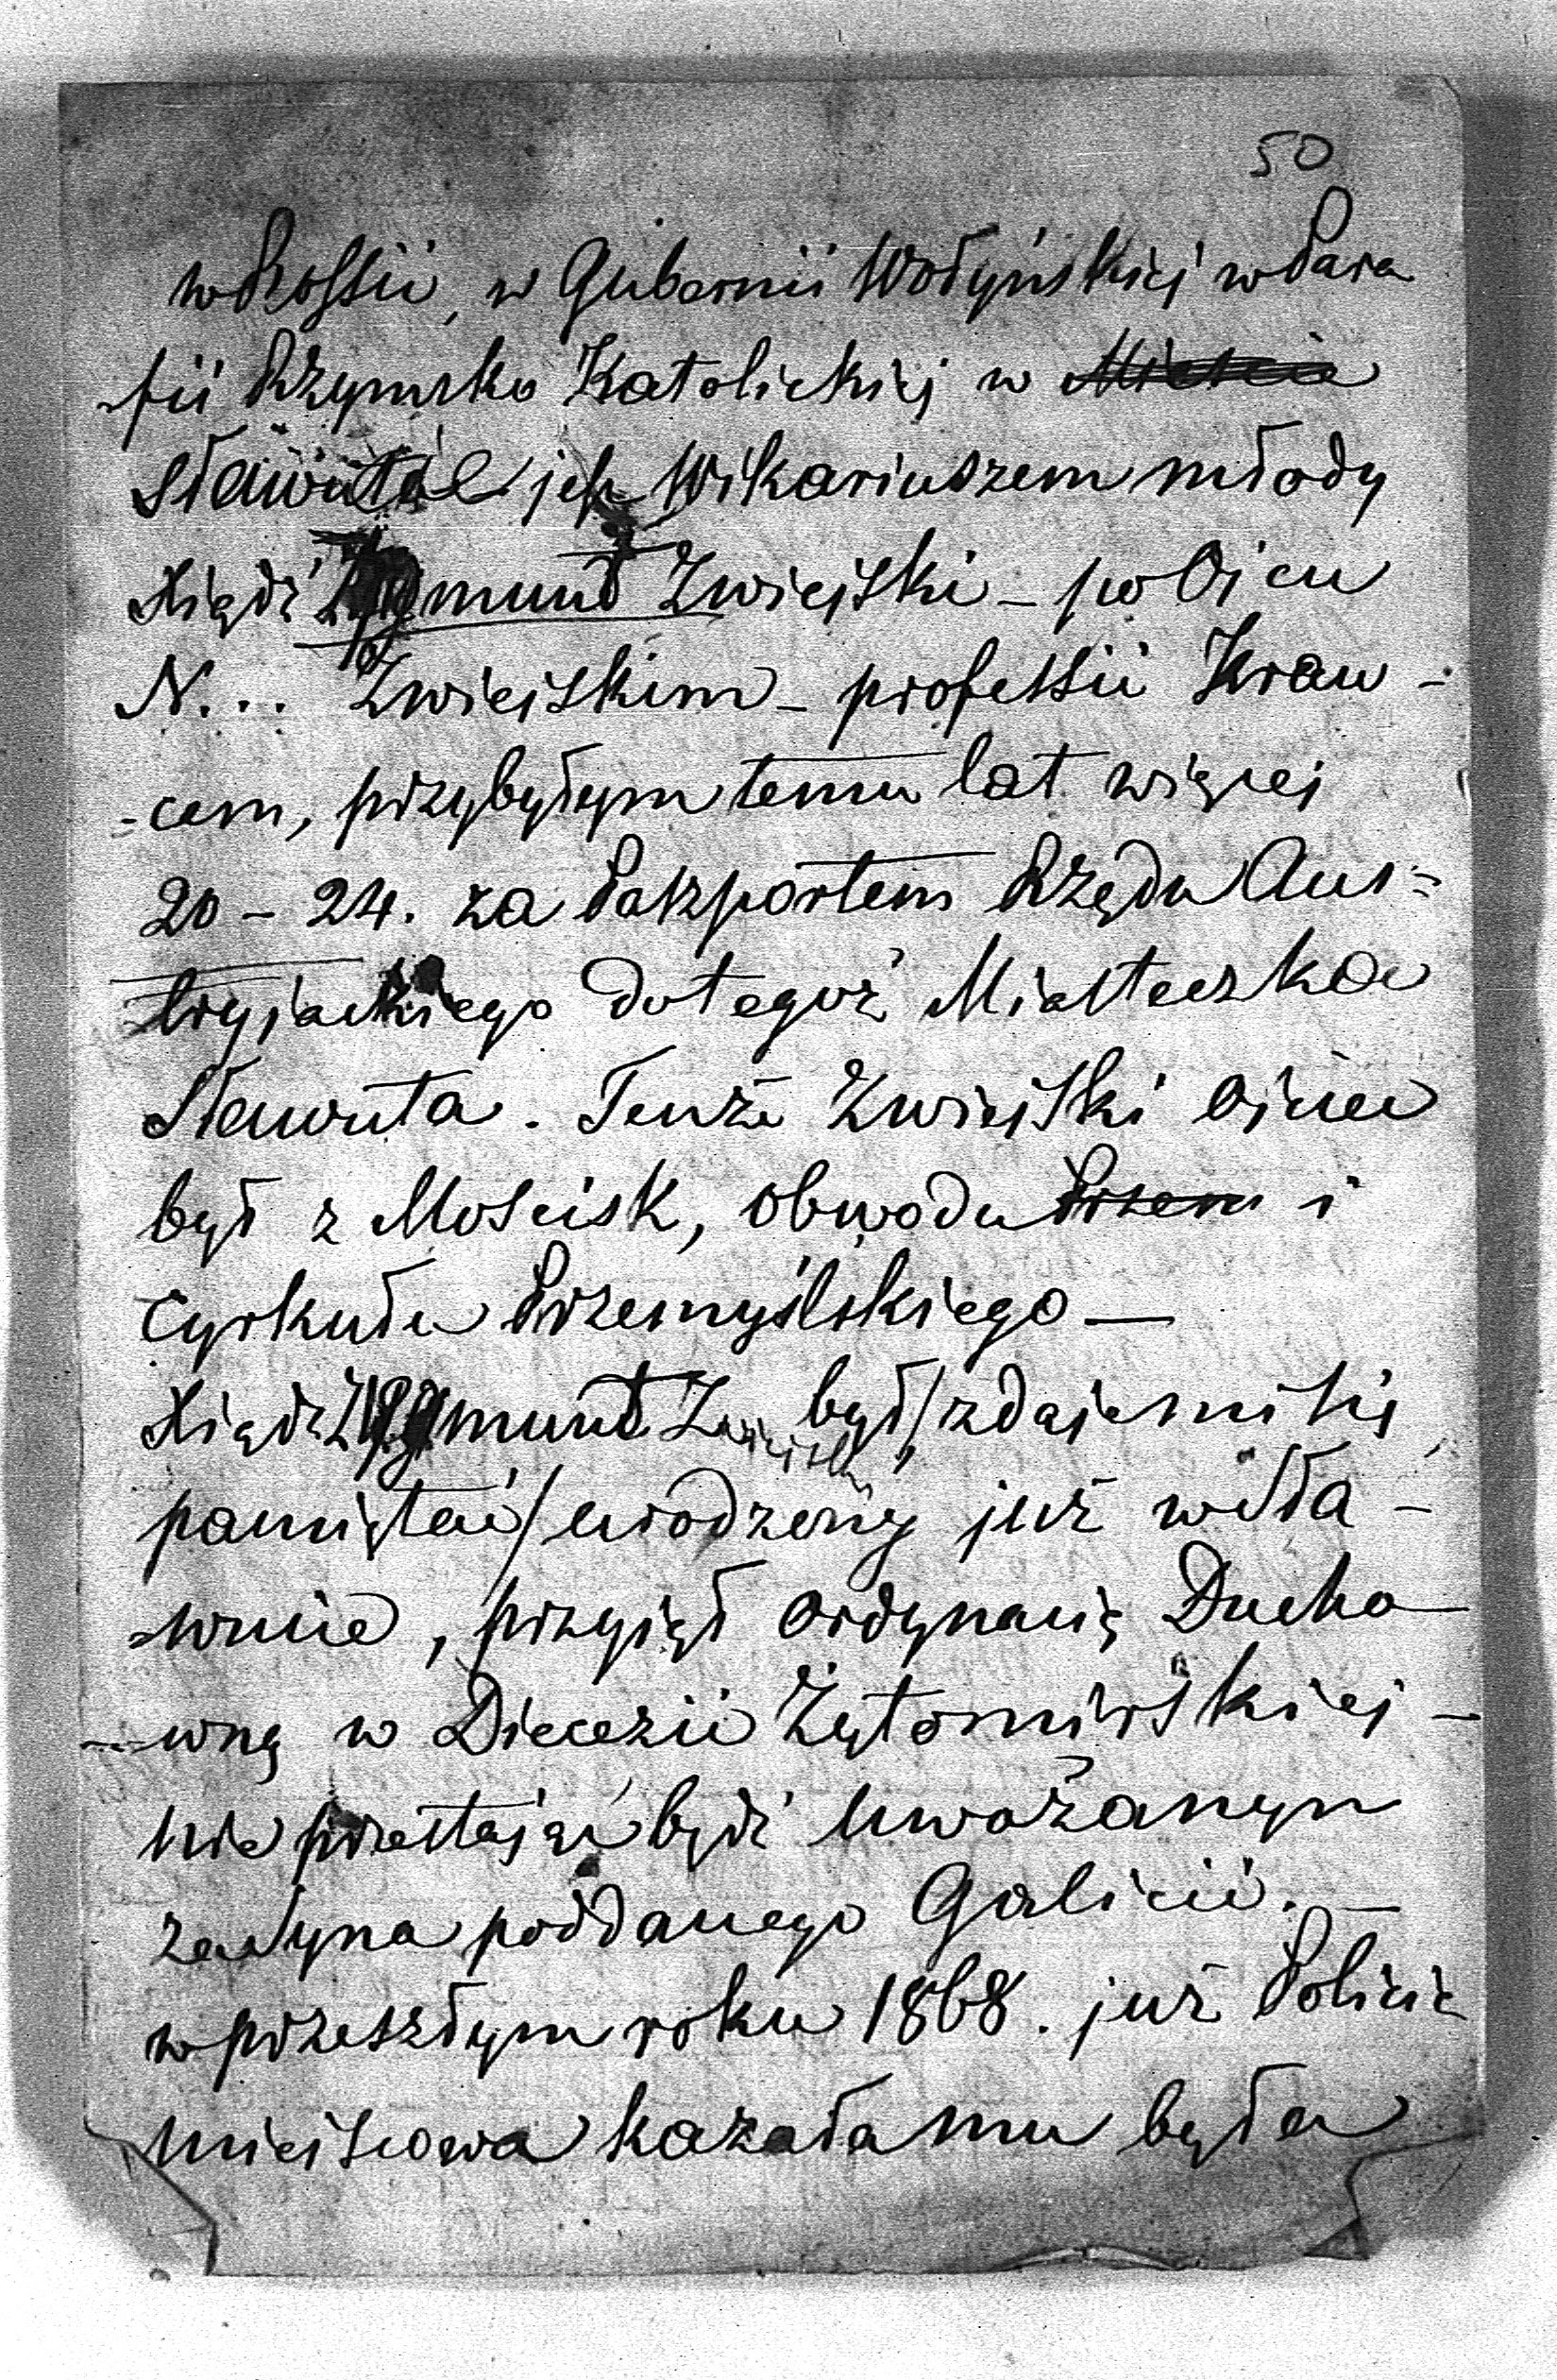 50
w Rossii, w Gubernii Wołyńskiej w Para
fii Rzymsko Katolickiej w Mieście
Sławuta jest Wikariuszem młody
Xiądz Zygmunt Zwiejski – po Ojcu
N... Zwiejskim – professii Kraw-
-cem, przybyłym temu lat więcej
20 – 24. za Paszportem Rządu Aus=
tryjackiego do tegoż Miasteczka
Sławuta. Tenże Zwiejski Ojciec
był z Mościsk, obwodu Przem i
Cyrkułu Przemyślskiego —
Xiądz Zygmunt Zwiejski był / zdaje mi się
pamiętać / urodzony już w Sła-
wucie, przyjął Ordynacię Ducho
-wną w Diecezii Żytomirskiej –
nie przestając być uważanym
za Syna poddanego Galicii. –
w przeszłym roku 1868. już Policia
miejscowa kazała mu była